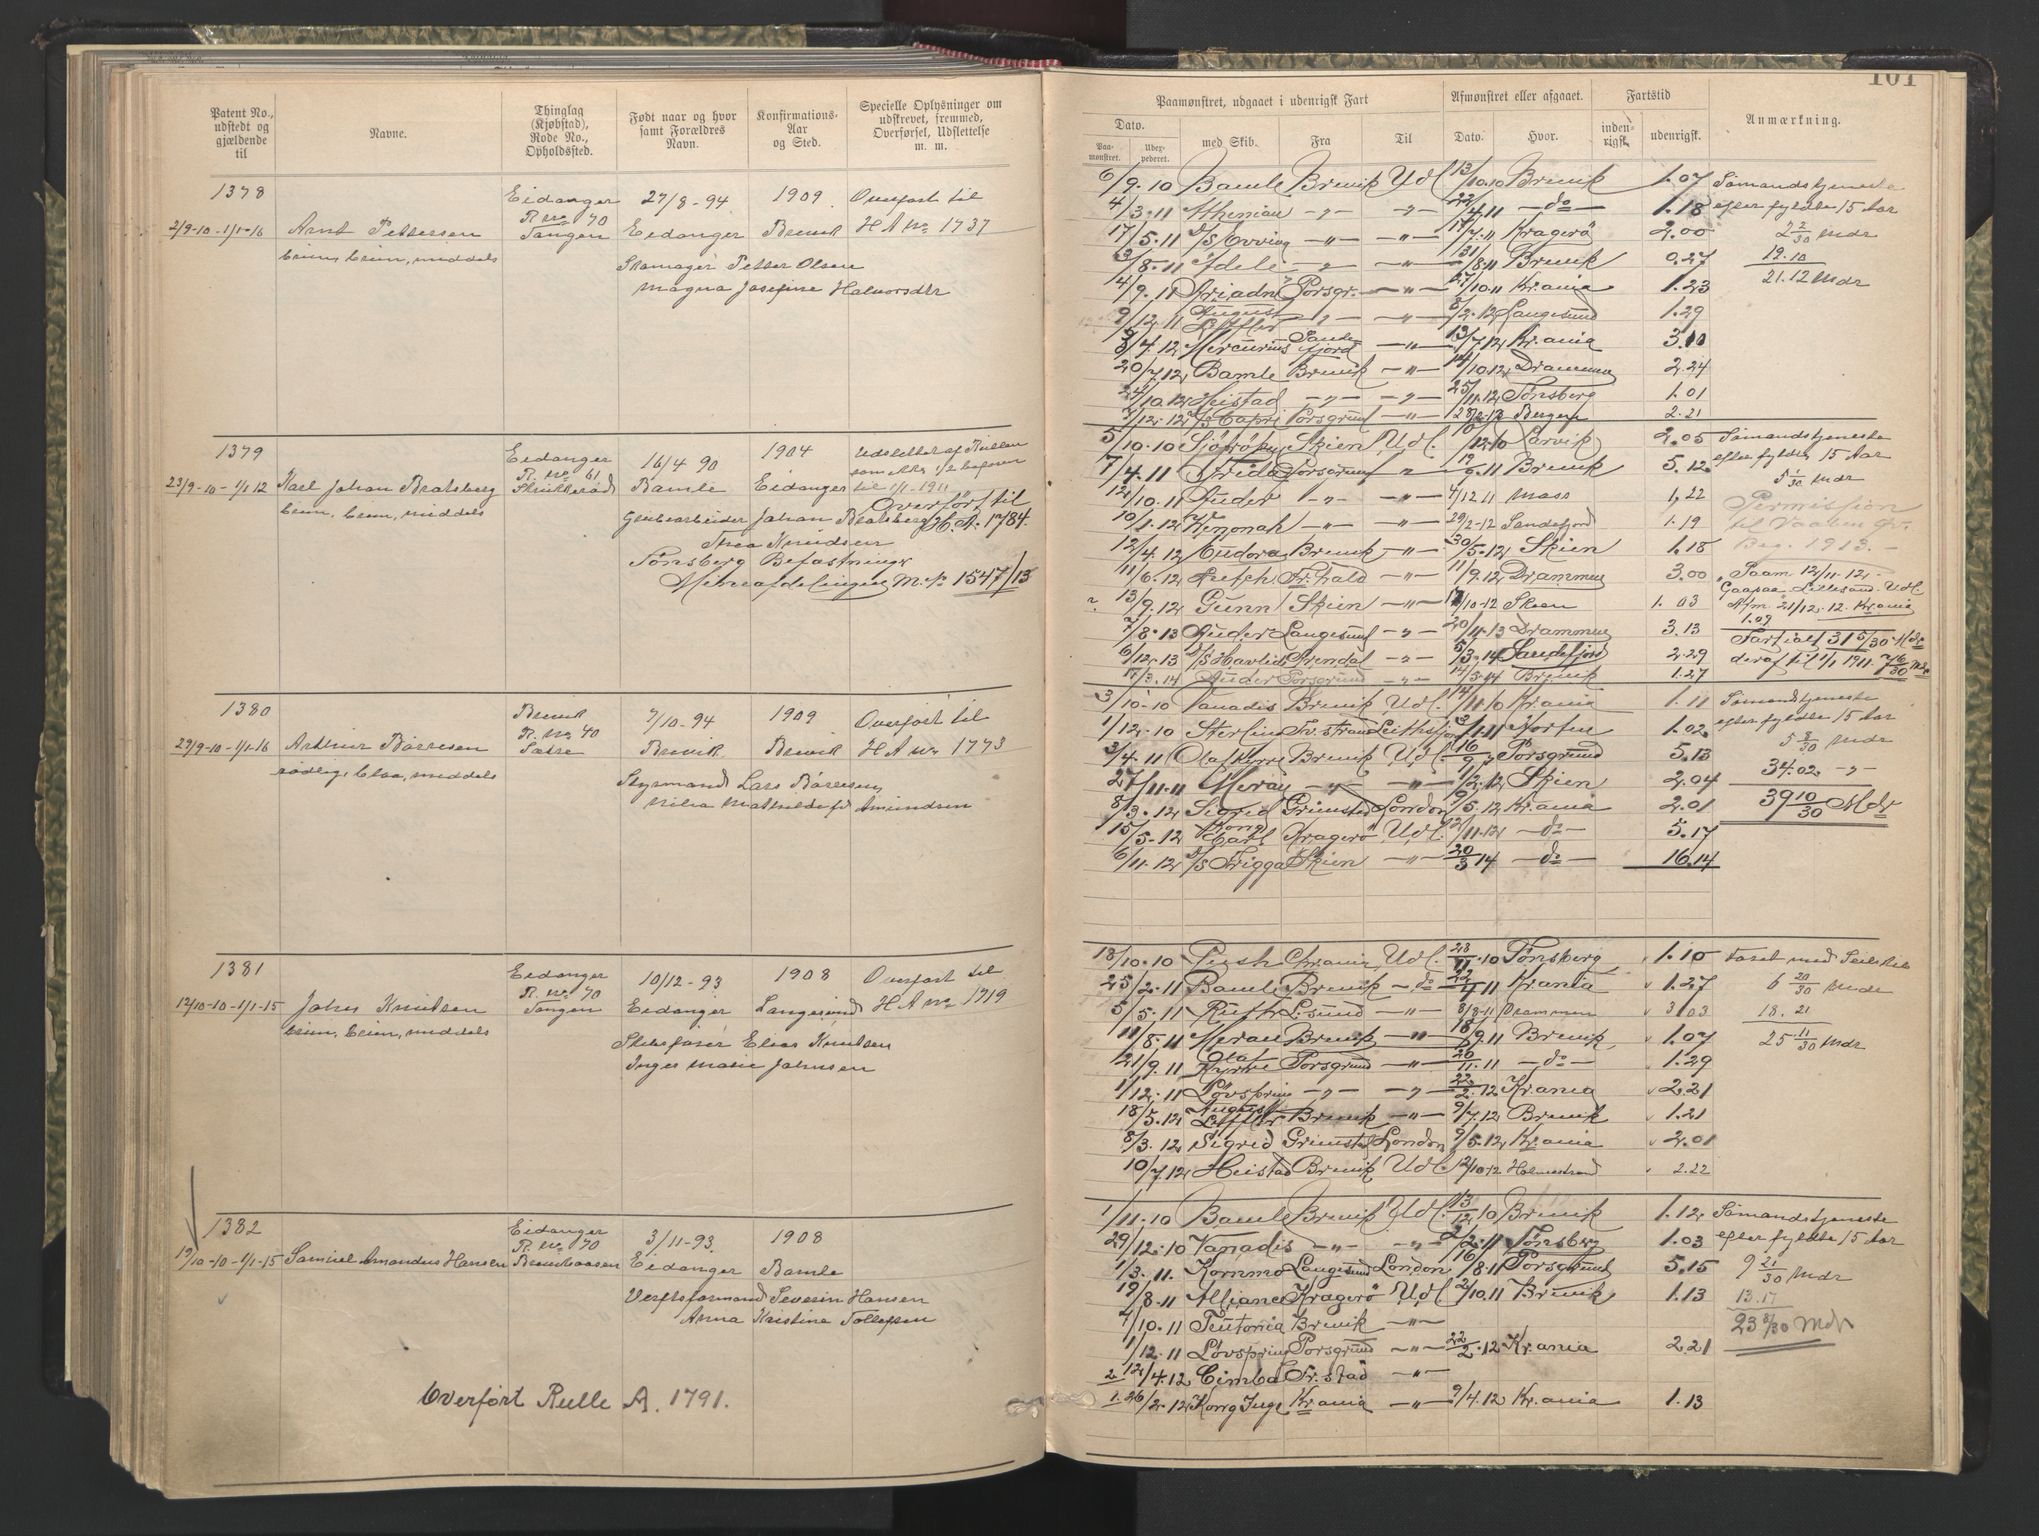 Patent No., udstedt og gjældende til
Navne.
Thinglag (Kjøbstad), Rode No., Opholdssted.
Født naar og hvor samt Forældres Navn.
Konfirmations-Aar og Sted.
Specielle Oplysninger om udskrevet, fremmed, Overførsel, Udslettelse m. m.
1378 Eidanger 27/8-94 1909 Overført til
R. No 70
2/9-10-1/1-16 Arnt Pettersen Tangen Eidanger Brevik H A No 1737
brun, brun, middels
Skomager Petter Olsen
Magna Josefine Halvorsdtr
1379 Eidanger 16/4 90 1904 Udslettet af Rullen
R. No 61
23/9-10-1/1 12 Karl Johan Bratsberg Bamle Eidanger til 1/1-1911
brun, brun, middels Overført til
Johan Bratsberg H. A. 1784.
Thea Knudsen
Tønsberg Befæstninger
Mineafdelingen M. No 1547/13
1380 Brevik 7/10-94 1909 Overført til
R. No 40
29/9-10-1/1-16 Arthur Børresen Brevik Brevik H A No 1773
rødlig, blaa, middels
Styrmand Lars Børresen
Amundsen
1381 Eidanger 10/12-93 1908 Overført til
R. No 70
12/10-10-1/1-15 Johs Knutsen Tangen Eidanger Langesund H A No 1719
brun, brun, middels
Elias Knutsen
Inger Marie Johnsen
1382 Eidanger 3/11-93. 1908
R. No 70
19/10-10-1/1-15 Samuel Amandus Hansen Eidanger Bamle
Verftsformand Severin Hansen
Anna Kristine Tollefsen
Overført Rulle A. 1791.
101
Paamønstret, udgaaet i udenrigsk Fart
Afmønstret eller afgaaet.
Fartstid
Anmærkning.
Dato.
Paa-mønstret.
Udex-pederet.
med Skib.
Fra
Til
Dato.
Hvor.
inden-rigsk.
udenrigsk.
6/9-10 Bamle Brevik Udl. 13/10.10 Brevik 1.07 Sømandstjeneste
4/3.11 Athenian -"- -"- 22/4.11 -do- 1.18 efter fyldte 15 Aar
17/5.11 -"- -"- Kragerø 2.00 2 2/30 Mdr
3/8-11 Adele -"- -"- 31/8-11 Brevik 0.27 19.10
4/9.11 Ariadne Porsgr. -"- 27/10.11 Kr.ania 1.23 21.12 Mdr
9/12.11 August Leffler -"- -"- 8/2.12 Langesund 1.29
4.12 Mercurius Sandefjord -"- 13/7.12 Kr.ania 3.10
20/7.12 Bamle Brevik -"- 14/10.12 Drammen 2.24
24/10.12 Heistad -"- -"- 25/11.12 Tønsberg 1.01
7/12.12 S/S Capri Porsgrund -"- 28/2-13 Bergen 2.21
5/10-10 Skien Udl. 12.10 Larvik 2.05 Sømandstjeneste
7/4.11 Frida Porsgrund -"- 9.11 Brevik 5.12 efter fyldte 15 Aar
12/10.11 Auder -"- -"- 4/12 11 Moss 1,22 5 1/30 Mdr
10/1.12 Kenonah -"- -"- 29/2-12 Sandefjord 1.19 Permission
12/4.12 Eudora Brevik -"- 30/5.12 Skien 1.18 Beg. 1913.
11/6.12 Fr.hald -"- 11/9.12 Drammen 3.00 Paam 12/11-12
13/9.12 Gunn Skien -"- 17/10-12 Skien 1.03 Lillesand. Udl.
Afm. 21/12.12. Kr.ania
1.09
7/8.13 Auder Langesund -"- 20/11.13 Drammen 3.13 Fartid 31 5/30 Mdr
6/12.13 S/S Havlide Arendal -"- 5/3.14 Sandefjord 2.29 deraf til 1/1 1911 7 6/30 Mdr
17/3.14 Auder Porsgrund -"- 14/5.14 Brevik 1.27
3/10-10 Vanadis Brevik Udl. 14/11 10 Kr.ania 1.11 Sømandstjeneste
1/12.10 1.11 Horten 1.02 efter fyldte 15 Aar
3/4.11 Olaf Kyrre Brevik Udl. 16/9 Porsgrund 5.13 5 8/30 Mdr
27/11.11 Merau -"- -"- 11/2.12 Skien 2.04 34.02 -"-
8/3.12 Sigrid Grimstad London 9/5.12 Kr.ania 2.01 39 10/30 Mdr
15/5.12 Kong Carl Kragerø Udl. 2/11.12 -do- 5.17
6/11.12 S/S Frigga Skien -"- 20/3 14 -do- 16.14
18/10.10 Chrania Udl. 28/11.10 Tønsberg 1.10
25/2.11 Bamle Brevik -do- 22/4 11 Krania 1.27 6 20/30 Mdr
5/5.11 Ruth L.sund -"- 8/8-11 Drammen 3.03 18.21
11/8.11 Merau Brevik -"- 18/9.11 Brevik 1.07 25 11/30 Mdr
21/9.11 Olaf Kyrre Porsgrund -"- 20/11.11 -do- 1.29
1/12.11 Løvspring -"- -"- 22/2.12 Kr.ania 2.21
18/5.12 August Leffler Brevik -"- 9/7.12 Brevik 1.21
8/3.12 Sigrid Grimstad London 9/5.12 Kr.ania 2.01
10/7.12 Heistad Brevik Udl. 12/10 12 Holmestrand 2.22
1/11.10 Bamle Brevik Udl. 13/12.10 Brevik 1.12 Sømandstjeneste
29/12.10 Vanadis -"- -"- 2/2.11 Tønsberg 1.03 efter fyldte 15 Aar
1/3.11. Kornmo Langesund London 16/8.11 Porsgrund 5.15 9 21/30 Mdr
19/8.11 Alliance Kragerø Udl. 2/10.11 Brevik 1.13 13.17
7/10.11 Teutonia Brevik -"- 23 8/30 Mdr
1/12.11 Løvspring Porsgrund -"- 22/2.12 Kr.ania 2.21
2. 12/4.12 Cimba Fr.stad -"-
1. 26/2.12 Kong Inge Kr.ania -"- 9/4.12 Kr.ania 1.13